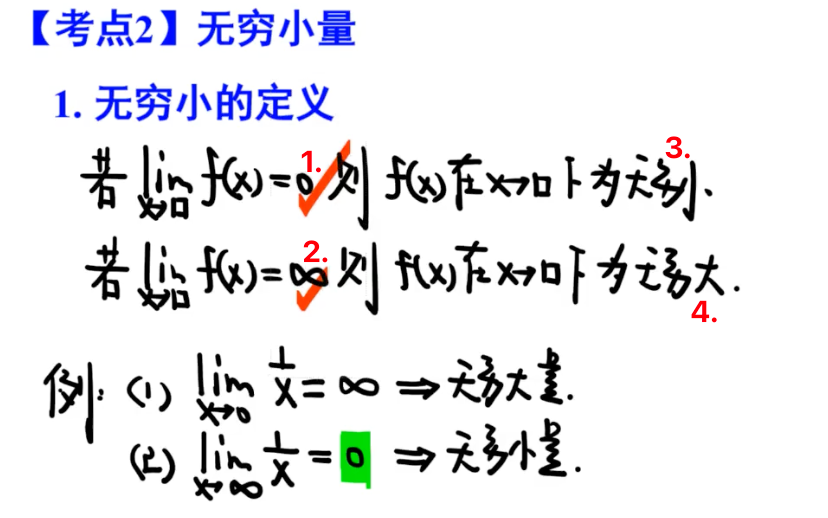 【考点2】无穷小量
1. 无穷小的定义
3.
若 lim x→□ f(x)=0 1. 则 f(x)在x→□下为无穷小.
若 lim x→□ f(x)=∞ 2. 则 f(x)在x→□下为无穷大.
4.
例: (1) lim x→0 1/x = ∞ ⇒ 无穷大量.
(2) lim x→∞ 1/x = 0 ⇒ 无穷小量.